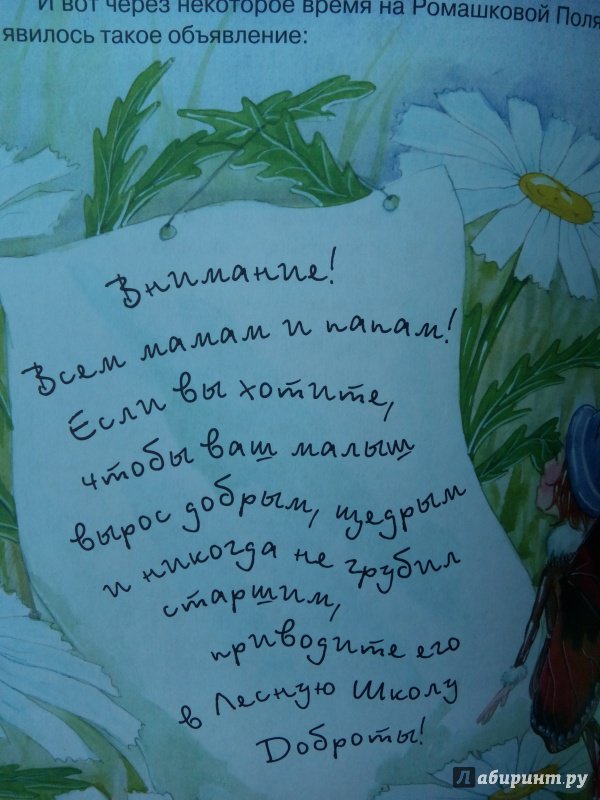 И вот через некоторое время на Ромашковой Поля
явилось такое объявление:
Внимание!
Всем мамам и папам!
Если вы хотите,
чтобы ваш малыш
вырос добрым, щедрым
и никогда не грубил
старшим,
приводите его
в Лесную Школу
Доброты!
Лабиринт.ру